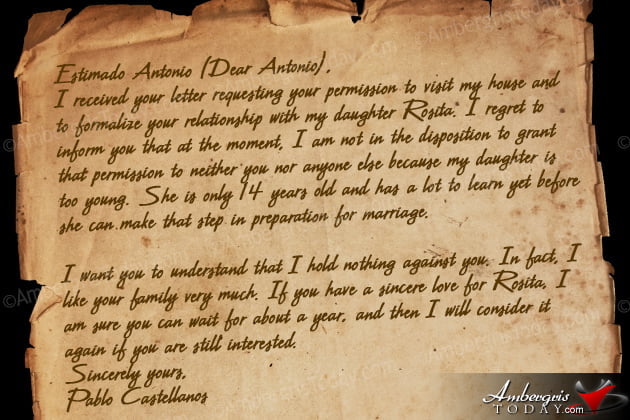 Estimado Antonio (Dear Antonio),
I received your letter requesting your permission to visit my house and
to formalize your relationship with my daughter Rosita. I regret to
inform you that at the moment, I am not in the disposition to grant
that permission to neither you nor anyone else because my daughter is
too young. She is only 14 years old and has a lot to learn yet before
she can make that step in preparation for marriage.
I want you to understand that I hold nothing against you. In fact, I
like your family very much. If you have a sincere love for Rosita, I
am sure you can wait for about a year, and then I will consider it
again if you are still interested.
Sincerely yours,
Pablo Castellanos
Ambergris
TODAY.com